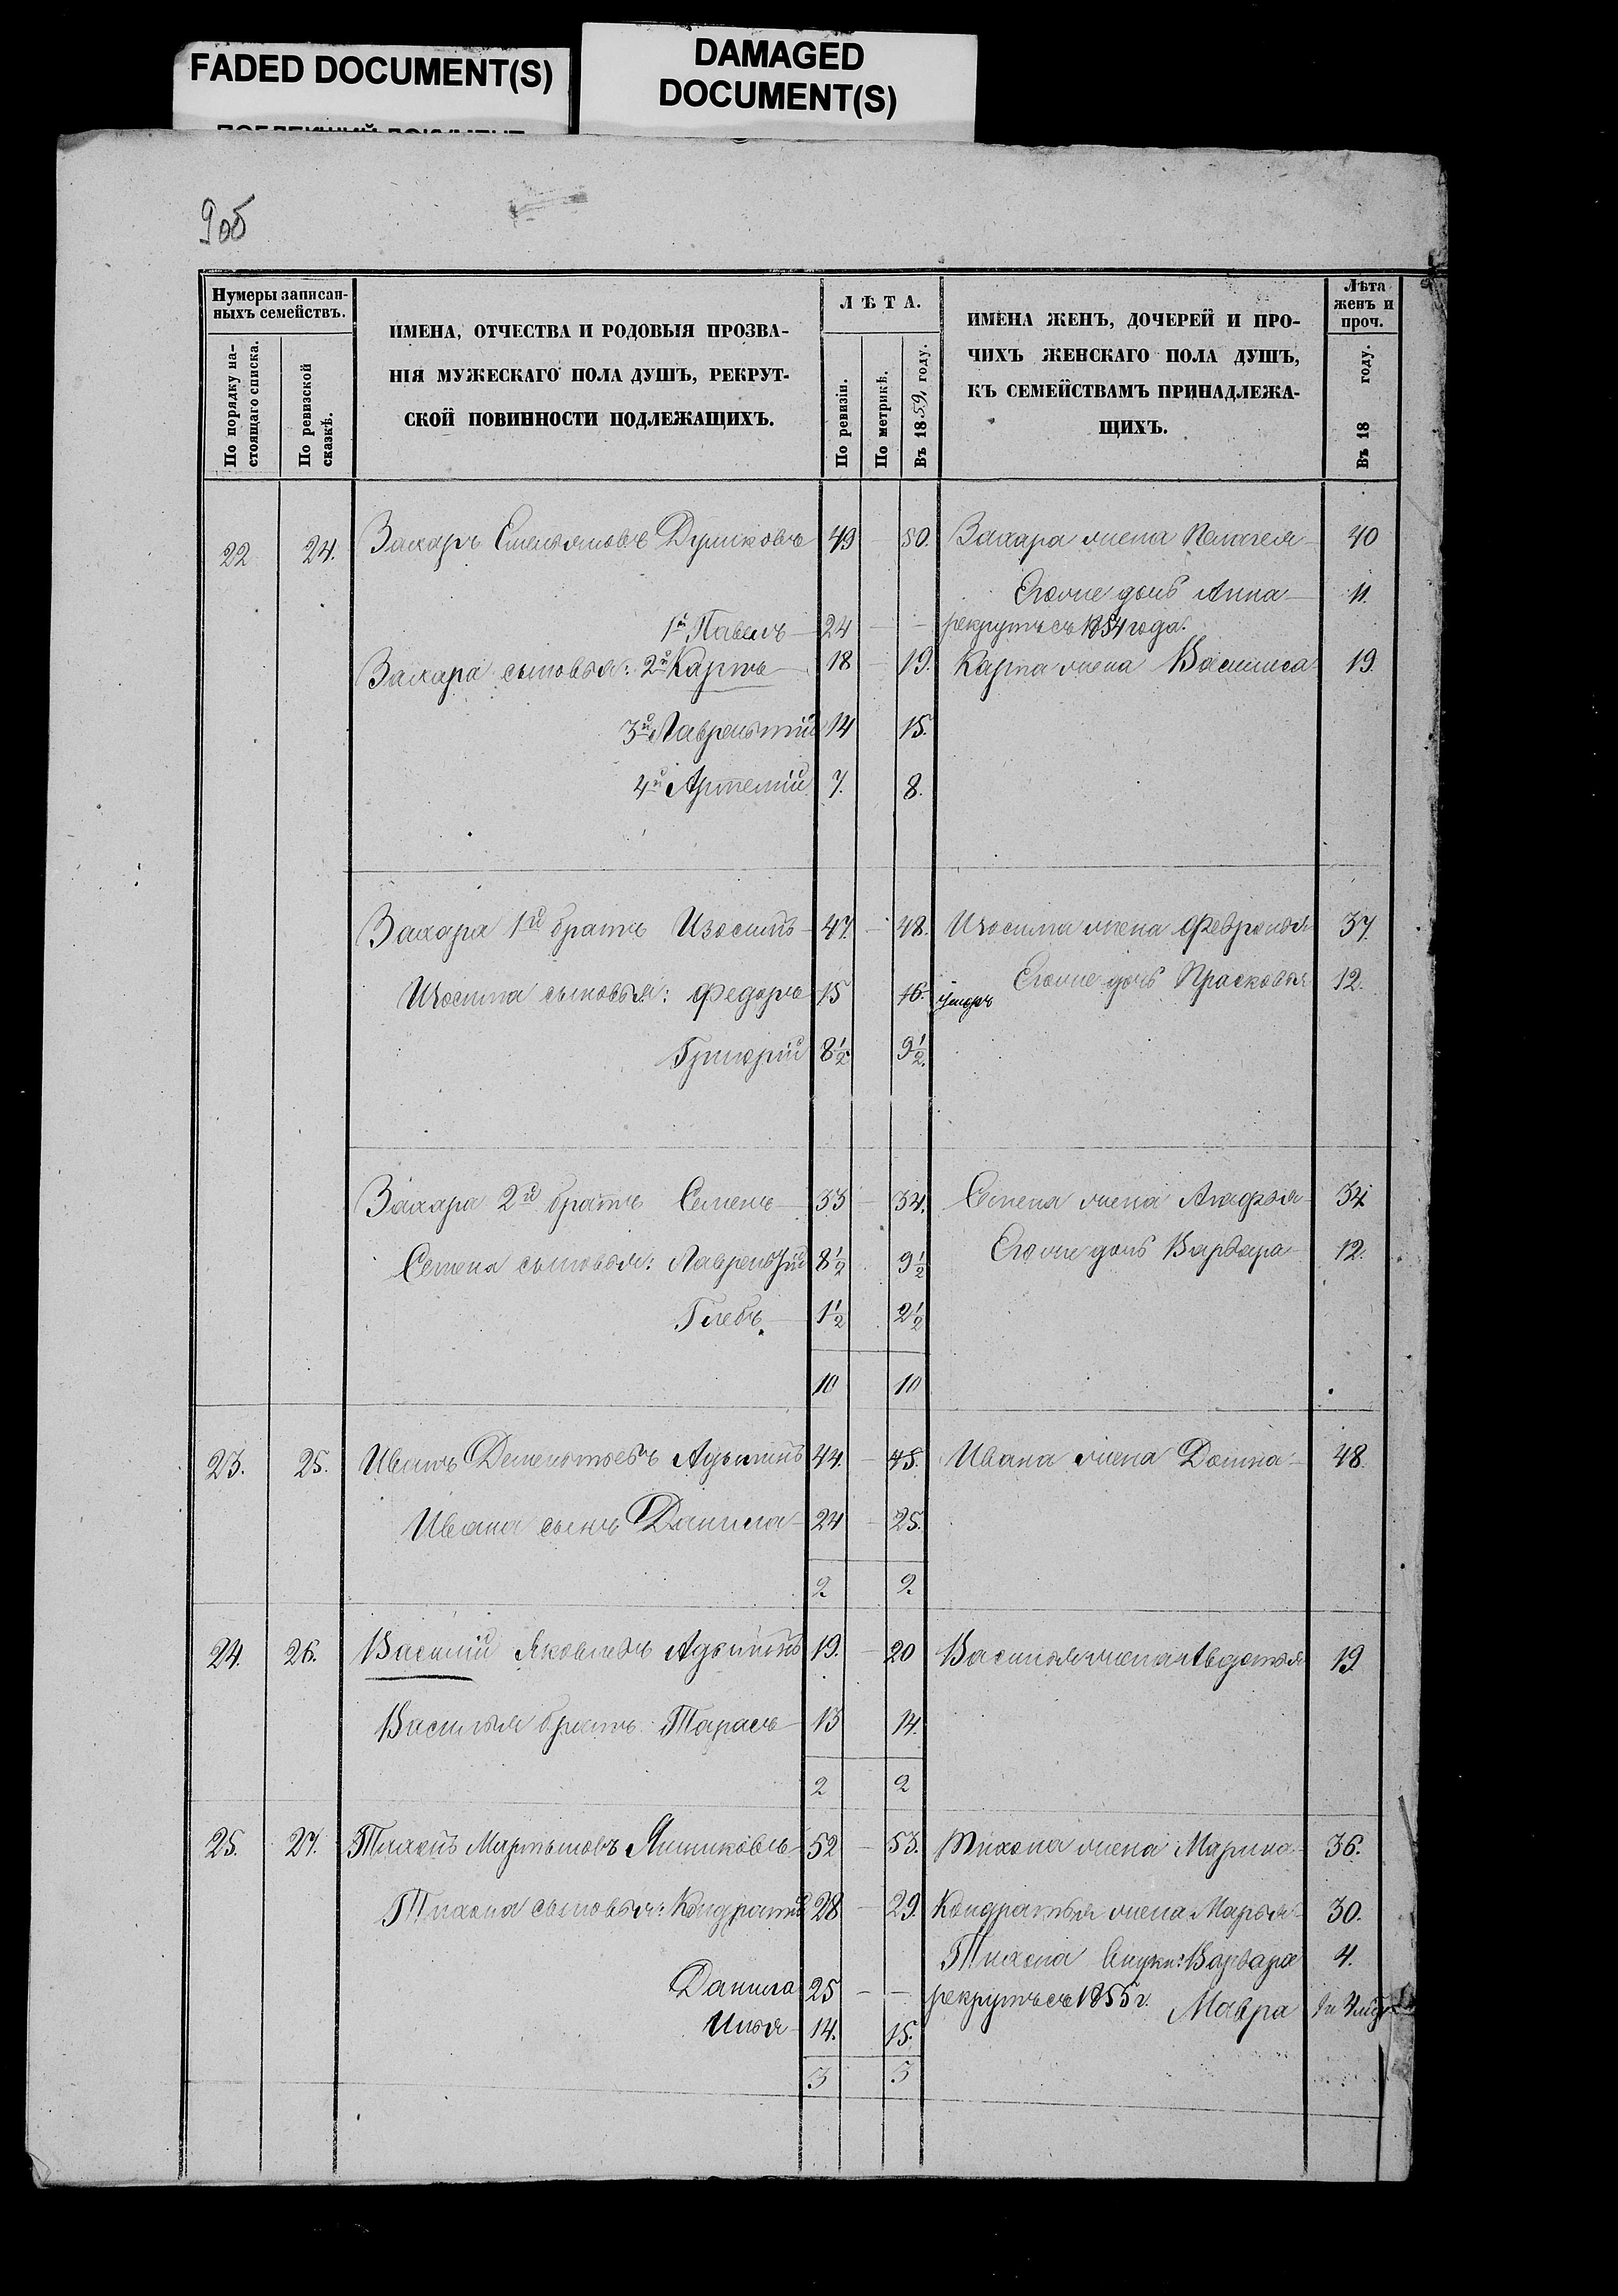 FADED DOCUMENT(S)
DAMAGED
DOCUMENT(S)
9об
Нумеры записан-
ныхъ семействъ.
По порядку на-
стоящаго списка.
По ревизской
сказкѣ.
ИМЕНА, ОТЧЕСТВА И РОДОВЫЯ ПРОЗВА-
НІЯ МУЖЕСКАГО ПОЛА ДУШЪ, РЕКРУТ-
СКОЙ ПОВИННОСТИ ПОДЛЕЖАЩИХЪ.
ЛѢТА.
По ревизіи.
По метрикѣ.
Въ 1859 году.
ИМЕНА ЖЕНЪ, ДОЧЕРЕЙ И ПРО-
ЧИХЪ ЖЕНСКАГО ПОЛА ДУШЪ,
КЪ СЕМЕЙСТВАМЪ ПРИНАДЛЕЖА-
ЩИХЪ.
Лѣта
женъ и
проч.
Въ 18 году.
22 24. Захаръ Емельяновъ 49 – 50. Захара жена Пелагея 40
Егоже дочь Анна 11.
1й Павелъ 24 – – рекрутъ съ 1854 года.
Захара сыновья: 2й Карпъ 18 – 19. Карпа жена Василиса 19.
3й Лаврентий 14 15.
4й Артемий 7. 8.
Захара 1й братъ Изосимъ 47. – 48. Изосима жена Февронья 37.
Егоже дочь Прасковья 12.
Изосима сыновья: Федоръ 15 16. умеръ
Григорий 8 1/2 9 1/2.
Захара 2й братъ Семенъ 33 – 34. Семена жена Агафья 34
Егоже дочь Варвара 12.
Семена сыновья: Лаврентий 8 1/2 9 1/2
Глебъ 1 1/2 2 1/2
10 10
23. 25. Иванъ Дементьевъ 44. – 45. Ивана жена Домна 48.
Ивана сынъ Данила 24 – 25.
2 2
24. 26. Василий Яковлевъ 19. – 20 Василья жена Авдотья 19
Василья братъ Тарасъ 13 14.
2 2
25. 27. Тихонъ Мартыновъ 52 – 53. Тихона жена Марина 36.
Тихона сыновья: Кондратий 28 – 29. Кондратья жена Марья 30.
Тихона внуки: Варвара 4.
Данила 25 – – рекрутъ съ 1855 г. Мавра
Илья 14. 15.
3 3